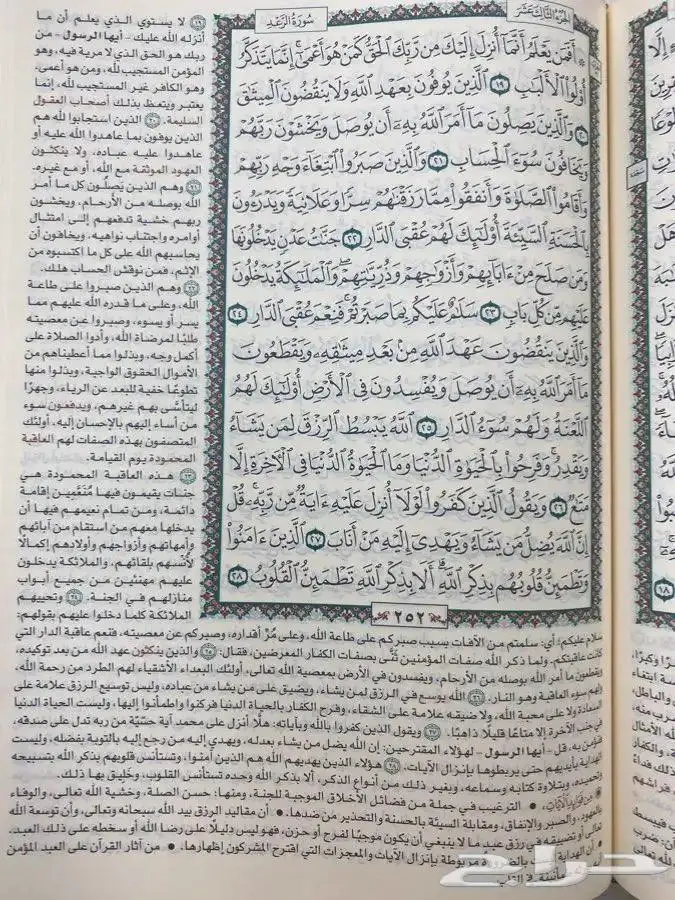 الجزء الثالث عشر
سورة الرعد
۞ أَفَمَن يَعْلَمُ أَنَّمَآ أُنزِلَ إِلَيْكَ مِن رَّبِّكَ ٱلْحَقُّ كَمَنْ هُوَ أَعْمَىٰٓ إِنَّمَا يَتَذَكَّرُ
أُو۟لُوا۟ ٱلْأَلْبَٰبِ ١٩ ٱلَّذِينَ يُوفُونَ بِعَهْدِ ٱللَّهِ وَلَا يَنقُضُونَ ٱلْمِيثَٰقَ
٢٠ وَٱلَّذِينَ يَصِلُونَ مَآ أَمَرَ ٱللَّهُ بِهِۦٓ أَن يُوصَلَ وَيَخْشَوْنَ رَبَّهُمْ
وَيَخَافُونَ سُوٓءَ ٱلْحِسَابِ ٢١ وَٱلَّذِينَ صَبَرُوا۟ ٱبْتِغَآءَ وَجْهِ رَبِّهِمْ
وَأَقَامُوا۟ ٱلصَّلَوٰةَ وَأَنفَقُوا۟ مِمَّا رَزَقْنَٰهُمْ سِرًّا وَعَلَانِيَةً وَيَدْرَءُونَ
بِٱلْحَسَنَةِ ٱلسَّيِّئَةَ أُو۟لَٰٓئِكَ لَهُمْ عُقْبَى ٱلدَّارِ ٢٢ جَنَّٰتُ عَدْنٍ يَدْخُلُونَهَا
وَمَن صَلَحَ مِنْ ءَابَآئِهِمْ وَأَزْوَٰجِهِمْ وَذُرِّيَّٰتِهِمْ وَٱلْمَلَٰٓئِكَةُ يَدْخُلُونَ
عَلَيْهِم مِّن كُلِّ بَابٍ ٢٣ سَلَٰمٌ عَلَيْكُم بِمَا صَبَرْتُمْ فَنِعْمَ عُقْبَى ٱلدَّارِ ٢٤
وَٱلَّذِينَ يَنقُضُونَ عَهْدَ ٱللَّهِ مِنۢ بَعْدِ مِيثَٰقِهِۦ وَيَقْطَعُونَ
مَآ أَمَرَ ٱللَّهُ بِهِۦٓ أَن يُوصَلَ وَيُفْسِدُونَ فِى ٱلْأَرْضِ أُو۟لَٰٓئِكَ لَهُمُ
ٱللَّعْنَةُ وَلَهُمْ سُوٓءُ ٱلدَّارِ ٢٥ ٱللَّهُ يَبْسُطُ ٱلرِّزْقَ لِمَن يَشَآءُ
وَيَقْدِرُ وَفَرِحُوا۟ بِٱلْحَيَوٰةِ ٱلدُّنْيَا وَمَا ٱلْحَيَوٰةُ ٱلدُّنْيَا فِى ٱلْءَاخِرَةِ إِلَّا
مَتَٰعٌ ٢٦ وَيَقُولُ ٱلَّذِينَ كَفَرُوا۟ لَوْلَآ أُنزِلَ عَلَيْهِ ءَايَةٌ مِّن رَّبِّهِۦ قُلْ
إِنَّ ٱللَّهَ يُضِلُّ مَن يَشَآءُ وَيَهْدِىٓ إِلَيْهِ مَنْ أَنَابَ ٢٧ ٱلَّذِينَ ءَامَنُوا۟
وَتَطْمَئِنُّ قُلُوبُهُم بِذِكْرِ ٱللَّهِ أَلَا بِذِكْرِ ٱللَّهِ تَطْمَئِنُّ ٱلْقُلُوبُ ٢٨
٢٥٢
١٩ لا يستوي الذي يعلم أن ما
أنزله الله عليك - أيها الرسول - من
ربك هو الحق الذي لا مرية فيه، وهو
المؤمن المستجيب لله، ومن هو أعمى،
وهو الكافر غير المستجيب لله، إنما
يعتبر ويتعظ بذلك أصحاب العقول
السليمة. ٢٠ الذين استجابوا لله هم
الذين يوفون بما عاهدوا الله عليه أو
عاهدوا عليه عباده، ولا ينكثون
العهود الموثقة مع الله، أو مع غيره.
٢١ وهم الذين يَصِلُون كل ما أمر
الله بوصله من الأرحام، ويخشون
ربهم خشية تدفعهم إلى امتثال
أوامره واجتناب نواهيه، ويخافون أن
يحاسبهم الله على كل ما اكتسبوه من
الإثم، فمن نوقش الحساب هلك.
٢٢ وهم الذين صبروا على طاعة
الله، وعلى ما قدره الله عليهم مما
يسر أو يسوء، وصبروا عن معصيته
طلبًا لمرضاة الله، وأدوا الصلاة على
أكمل وجه، وبذلوا مما أعطيناهم من
الأموال الحقوق الواجبة، وبذلوا منها
تطوعًا خفية للبعد عن الرياء، وجهرًا
ليتأسى بهم غيرهم، ويدفعون سوء
من أساء إليهم بالإحسان إليه، أولئك
المتصفون بهذه الصفات لهم العاقبة
المحمودة يوم القيامة.
٢٣ هذه العاقبة المحمودة هي
جنات يقيمون فيها مُنَعَّمِين إقامة
دائمة، ومن تمام نعيمهم فيها أن
يدخلها معهم من استقام من آبائهم
وأمهاتهم وأزواجهم وأولادهم إكمالًا
لأنسهم بلقائهم، والملائكة يدخلون
عليهم مهنئين من جميع أبواب
منازلهم في الجنة. ٢٤ وتحييهم
الملائكة كلما دخلوا عليهم بقولهم:
سلام عليكم؛ أي: سلمتم من الآفات بسبب صبركم على طاعة الله، وعلى مُرِّ أقداره، وصبركم عن معصيته، فنعم عاقبة الدار التي
كانت عاقبتكم. ولما ذكر الله صفات المؤمنين ثَنَّى بصفات الكفار المعرضين، فقال: ٢٥ والذين ينكثون عهد الله من بعد توكيده،
ويقطعون ما أمر الله بوصله من الأرحام، ويفسدون في الأرض بمعصية الله تعالى، أولئك البعداء الأشقياء لهم الطرد من رحمة الله،
ولهم سوء العاقبة وهو النار. ٢٦ الله يوسع في الرزق لمن يشاء، ويضيق على من يشاء من عباده، وليس توسيع الرزق علامة على
السعادة ولا على محبة الله، ولا ضيقه علامة على الشقاء، وفرح الكفار بالحياة الدنيا فركنوا واطمأنوا إليها، وليست الحياة الدنيا
في جنب الآخرة إلا متاعًا قليلًا ذاهبًا. ٢٧ ويقول الذين كفروا بالله وبآياته: هلّا أنزل على محمد آية حسّيّة من ربه تدل على صدقه،
فنؤمن به، قل - أيها الرسول - لهؤلاء المقترحين: إن الله يضل من يشاء بعدله، ويهدي إليه من رجع إليه بالتوبة بفضله، وليست
الهداية بأيديهم حتى يربطوها بإنزال الآيات. ٢٨ هؤلاء الذين يهديهم الله هم الذين آمنوا، وتستأنس قلوبهم بذكر الله بتسبيحه
وتحميده، وبتلاوة كتابه وسماعه، وبغير ذلك من أنواع الذكر، ألا بذكر الله وحده تستأنس القلوب، وخَلِيق بها ذلك.
مِنْ فَوَائِدِ الآيَاتِ: • الترغيب في جملة من فضائل الأخلاق الموجبة للجنة، ومنها: حسن الصلة، وخشية الله تعالى، والوفاء
بالعهود، والصبر والإنفاق، ومقابلة السيئة بالحسنة والتحذير من ضدها. • أن مقاليد الرزق بيد الله سبحانه وتعالى، وأن توسعة الله
تعالى أو تضييقه في رزق عبدٍ ما لا ينبغي أن يكون موجبًا لفرح أو حزن، فهو ليس دليلًا على رضا الله أو سخطه على ذلك العبد.
• أن الهداية ليست بالضرورة مربوطة بإنزال الآيات والمعجزات التي اقترح المشركون إظهارها. • من آثار القرآن على العبد المؤمن
حراج